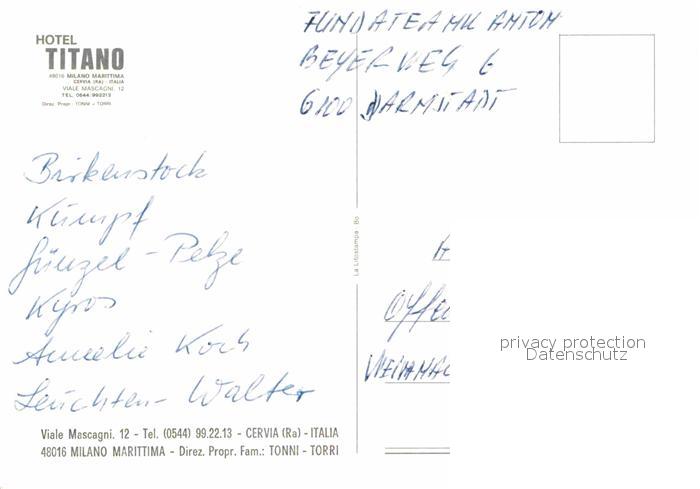 HOTEL
TITANO
48016 MILANO MARITTIMA
CERVIA (RA) - ITALIA
VIALE MASCAGNI, 12
TEL. 0544/992213
Direz. Propr.: TONNI - TORRI
ANTON
BEYERWEG 6
6100 DARMSTADT
Birkenstock
Kümpf
Günzel - Pelze
Kyros
Amalie Koch
Leuchten - Walter
La Litostampa - Bo
Offen
privacy protection
Datenschutz
Viale Mascagni, 12 - Tel. (0544) 99.22.13 - CERVIA (Ra) - ITALIA
48016 MILANO MARITTIMA - Direz. Propr. Fam.: TONNI - TORRI